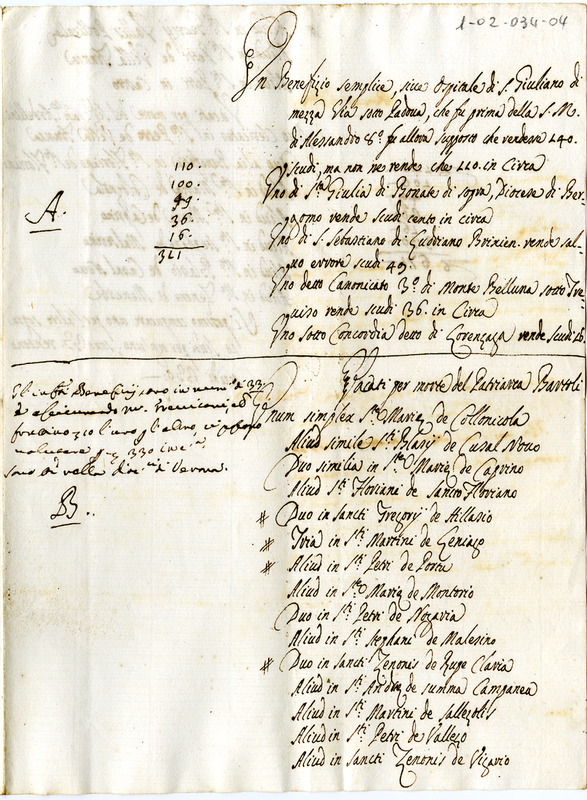 1-02-034-04
Un Benefizio semplice, sive Ospitale di S. Giuliano di
mezza Via sotto Padova, che fu prima della S. M.
di Alessandro 8.º fu allora supposto che vendesse 140.
scudi, ma non ne rende che 110. in Circa
Uno di S.ta Giulia di Bonate di sopra, Diocese di Ber-
gomo rende scudi cento in circa
Uno di S. Sebastiano di Gudriano rende sal-
vo errore scudi 49.
Uno detto Canonicato 3.º di Monte Belluna sotto Tre-
viso rende scudi 36. in Circa
Uno sotto Concordia detto di Lorenzaga rende scudi 16.
A.
110.
100.
49.
36.
16.
311
Vacati per morte del Patriarca Bartoli
Unum simplex S.tæ Mariæ de Collonicola
Aliud simile S.ti Blasij de Casal Novo
Duo similia in S.tæ Mariæ de Caprino
Aliud S.ti Floriani de Sancto Floriano
# Duo in Sancti Gregorij de Hillasio
# Tria in S.ti Martini de
# Aliud in S.ti Petri de Portu
Aliud in S.tæ Mariæ de Montorio
Duo in S.ti Petri de Nogaria
Aliud in S.ti Stephani de Malesino
# Duo in Sancti Zenonis de Rupe Clavia
Aliud in S.ti Andreæ de summa Campanea
Aliud in S.ti Martini de
Aliud in S.ti Petri de Vallezo
Aliud in Sancti Zenonis de Vigario
Benefizij sono in num.º di 33
330
di Verona.
B.